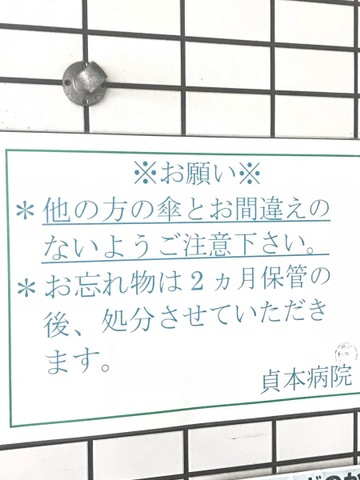 ※お願い※
＊他の方の傘とお間違えの
ないようご注意下さい。
＊お忘れ物は２ヵ月保管の
後、処分させていただき
ます。
貞本病院